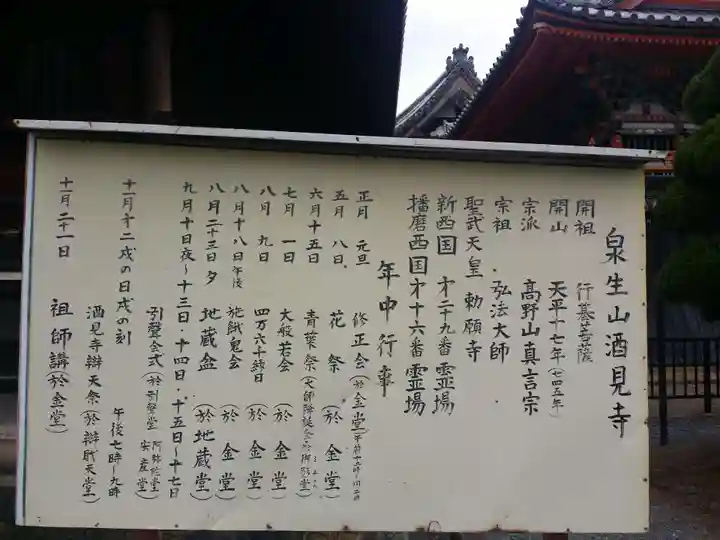 泉生山酒見寺
開祖 行基菩薩
開山 天平十七年(七四五年)
宗派 高野山真言宗
宗祖 弘法大師
聖武天皇 勅願寺
新西国 才二十九番霊場
播磨西国才十六番霊場
年中行事
正月 元旦 修正会(於金堂)
五月 八日 花祭(於金堂)
六月十五日 青葉祭(大師降誕会於御影堂)
七月 一日 大般若会(於金堂)
八月 九日 四万六千日(於金堂)
八月十八日午後 施餓鬼会(於金堂)
八月二十三日夕 地蔵盆(於地蔵堂)
九月十日夜~十三日・十四日・十五日~十七日
引聲会式(於引聲堂 阿弥陀堂 安産堂)
十一月才二戌の日戌の刻 午後七時~九時
酒見寺辯天祭(於辯財天堂)
十一月二十一日 祖師講(於金堂)